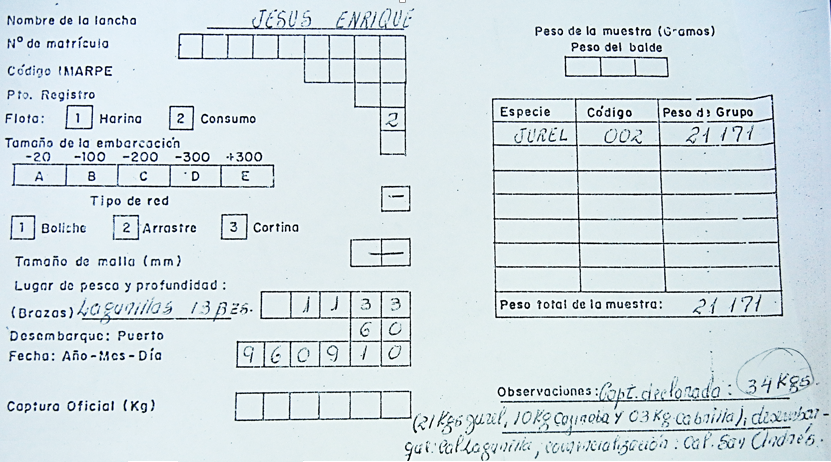 Nombre de la lancha JESUS ENRIQUE
Nº de matrícula
Código IMARPE
Pto. Registro
Flota: 1 Harina 2 Consumo 2
Tamaño de la embarcación
-20 -100 -200 -300 +300
A B C D E
Tipo de red —
1 Boliche 2 Arrastre 3 Cortina
Tamaño de malla (mm) —
Lugar de pesca y profundidad:
(Brazas) Lagunillas 13 bzs. 1 1 3 3
Desembarque: Puerto 6 0
Fecha: Año-Mes-Día 9 6 0 9 1 0
Captura Oficial (Kg)
Peso de la muestra (Gramos)
Peso del balde
Especie Código Peso de Grupo
JUREL 002 21 171
Peso total de la muestra: 21 171
Observaciones: Capt. declarada: 34 Kgs.
(21 Kgs jurel, 10 Kg Cojinoba y 03 Kg cabrilla); desembar-
que: Cal. Lagunilla, comercialización: Cal. San Andrés.